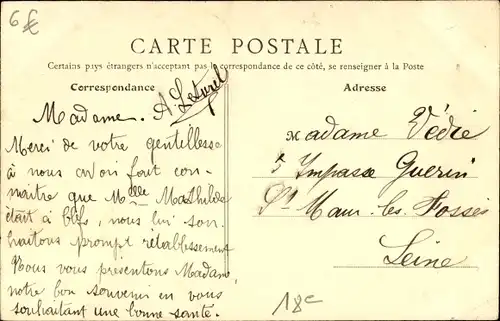 6 £
CARTE POSTALE
Certains pays étrangers n'acceptant pas la correspondance de ce côté, se renseigner à la Poste
Correspondance
Adresse
Madame.
Merci de votre gentillesse
à nous avoir fait con-
naitre que Melle Mathilde
était à blés, nous lui sou-
haitons prompt rétablissement
Nous vous présentons Madame,
notre bon souvenir en vous
souhaitant une bonne santé.
Madame Védie
5 Impasse Guerin
St Maur-les-Fossés
Seine
18c